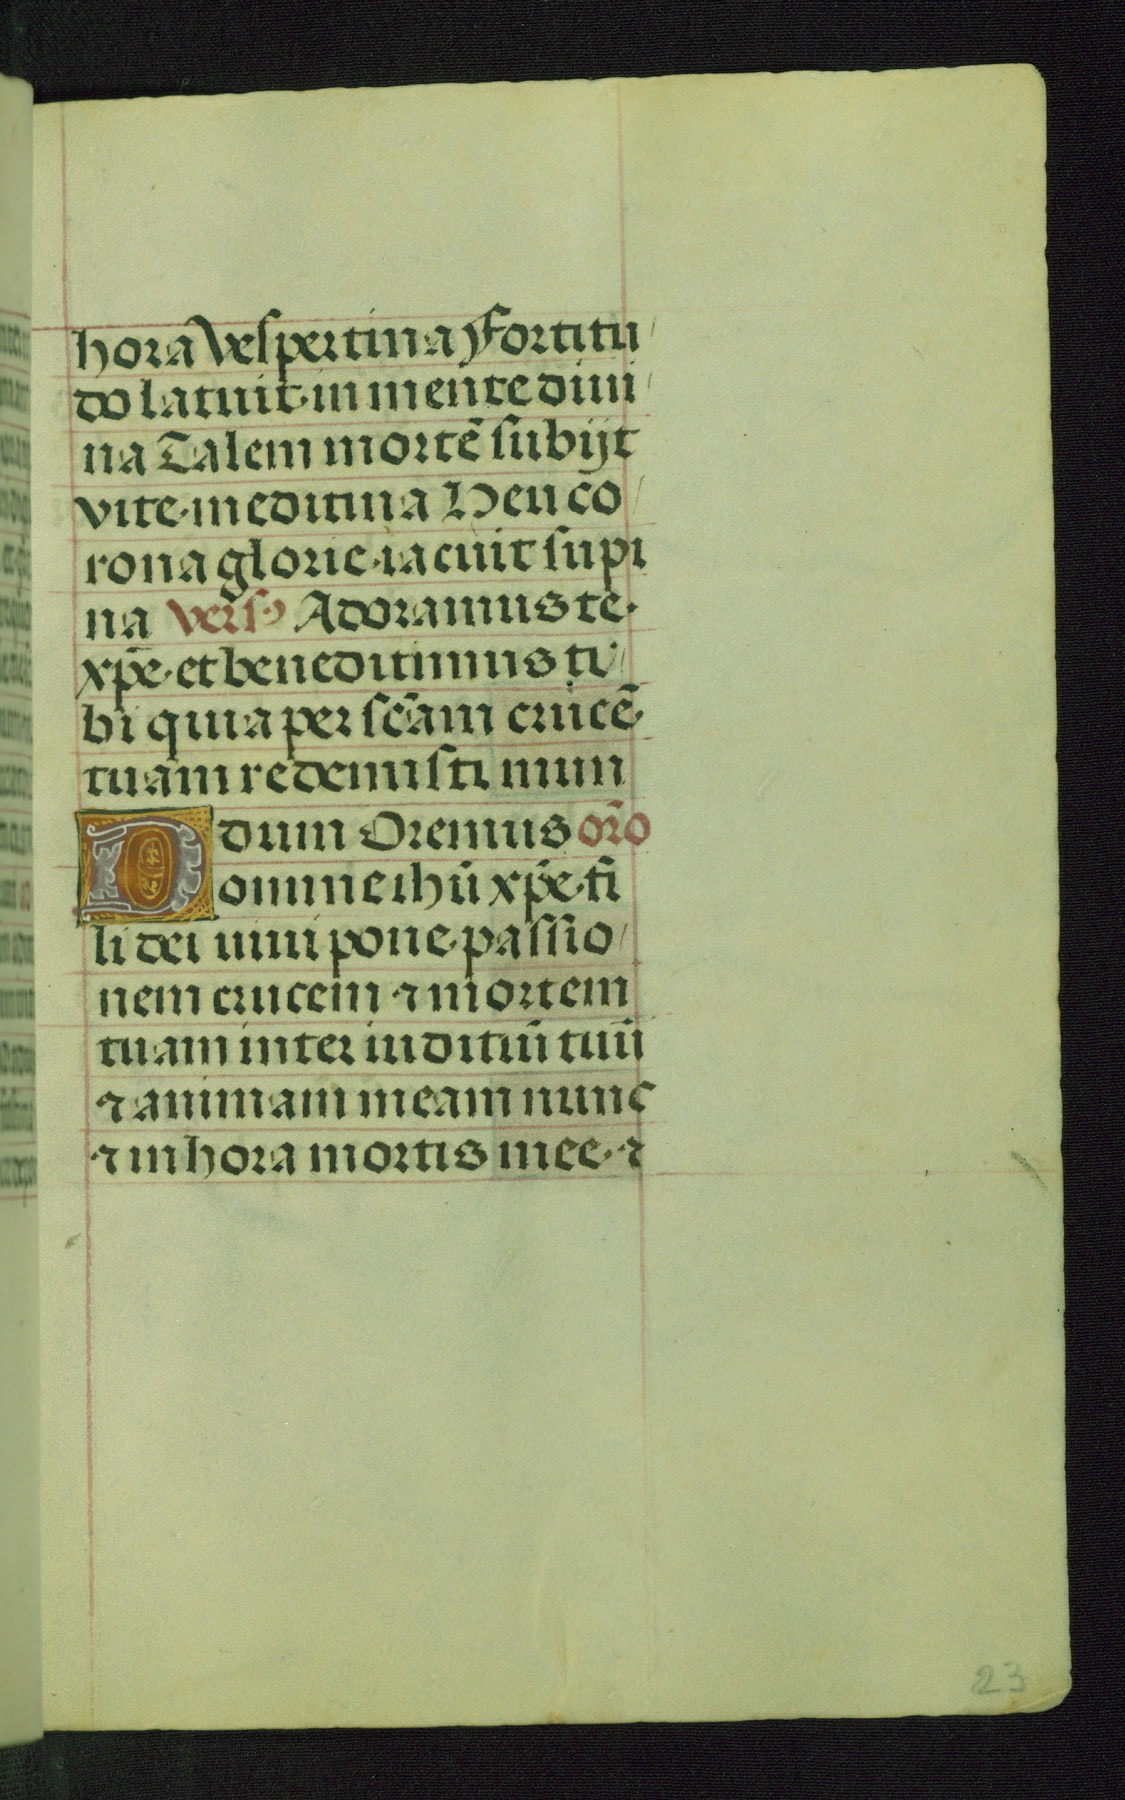 hora Vespertina Fortitu
do latuit·in mente diui
na Talem mortē subijt
vite·meditina Heu co
rona glorie·iacuit supi
na Vers᷒ Adoramus te·
xp̄e·et beneditimus ti
bi quia per sc̄am crucē·
tuam redemisti mun
dum Oremus orō
Domine ihū xp̄e·fi
li dei uiui pone·passio
nem crucem ⁊ mortem
tuam inter iuditiū tuū
⁊ animam meam nunc
⁊ in hora mortis mee·⁊
23